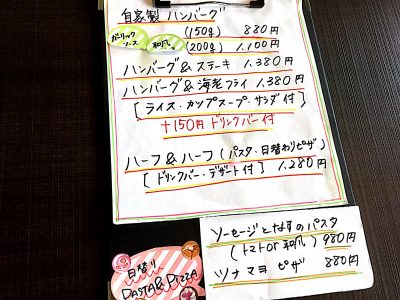 自家製 ハンバーグ
(150g) 880円
ガーリックソース 和風 (200g) 1.100円
ハンバーグ&ステーキ 1.380円
ハンバーグ&海老フライ 1.380円
[ライス・カップスープ・サラダ付]
+150円 ドリンクバー付
ハーフ&ハーフ(パスタ・日替わりピザ)
[ドリンクバー・デザート付] 1.280円
ソーセージとなすのパスタ
(トマトor和風) 980円
ツナマヨ ピザ 880円
日替り
PASTA&PIZZA